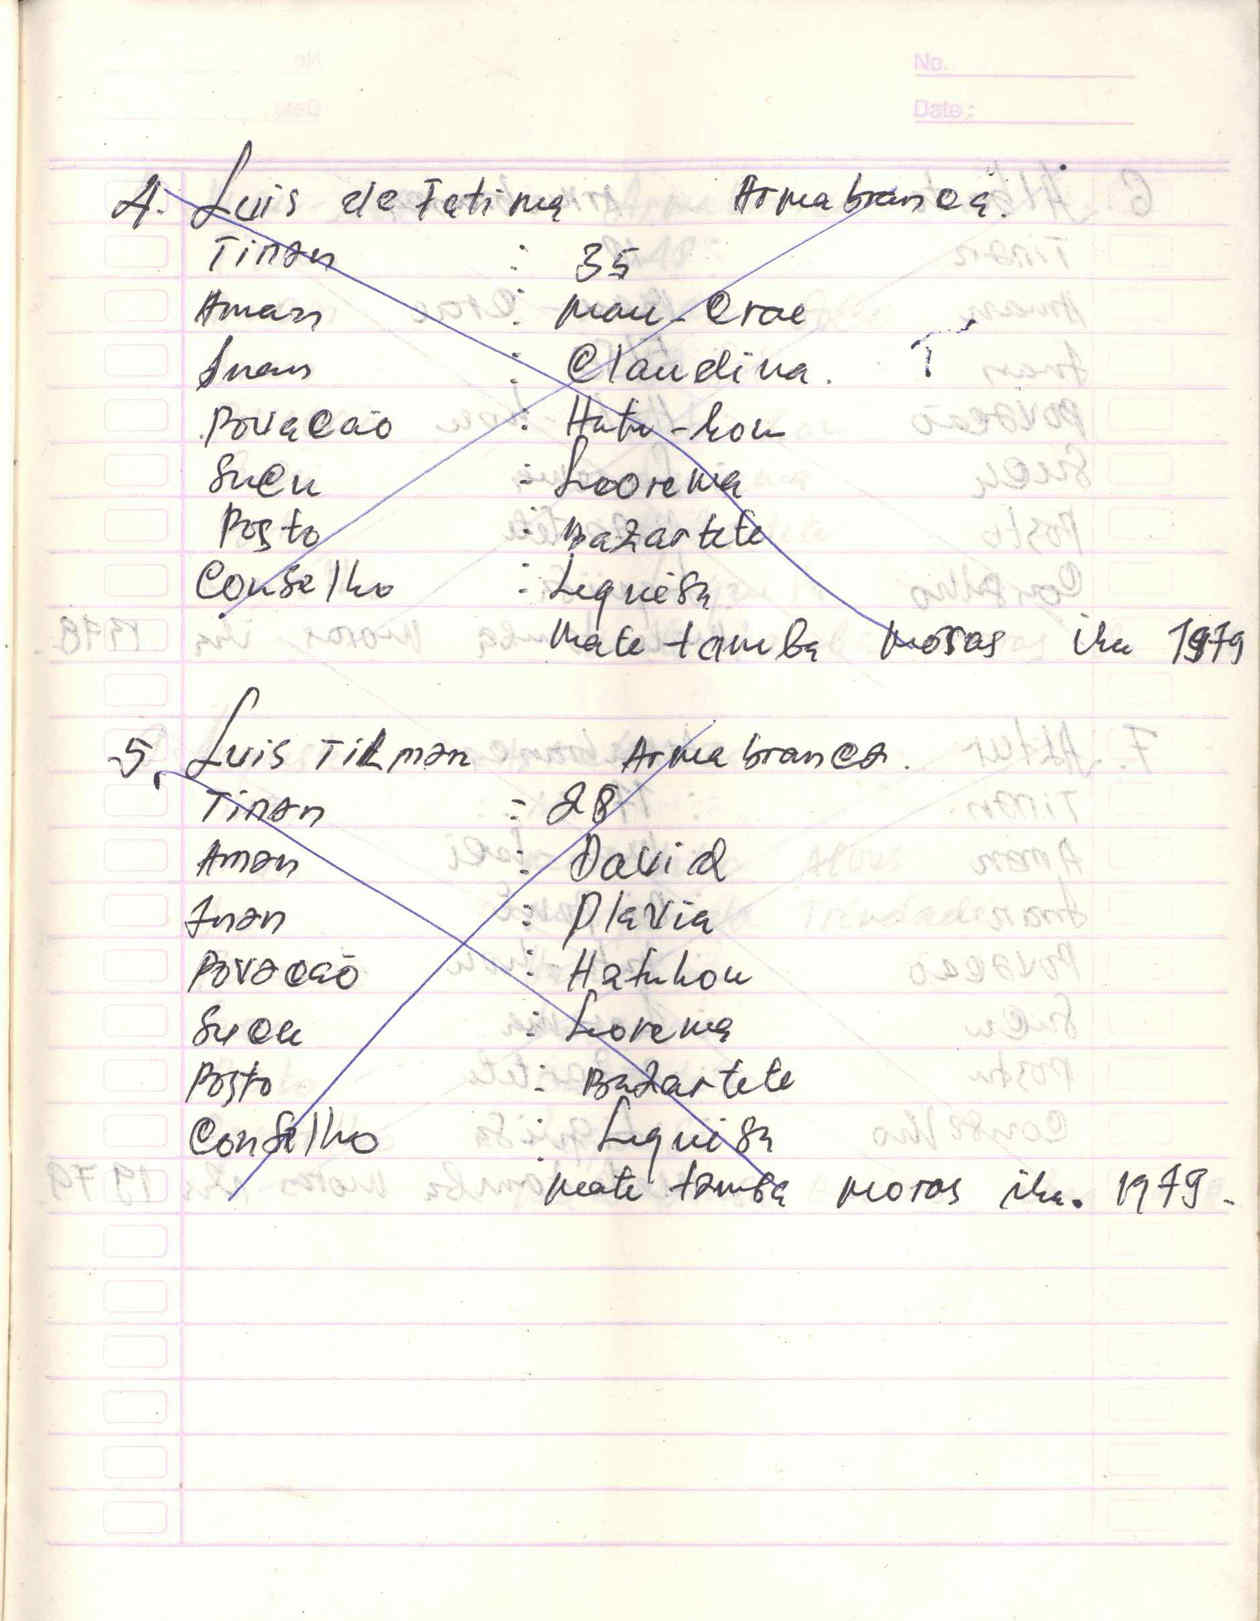 No.
Date:
4. Luis de Fatima Armabranca.
Tinan : 35
Aman : Mau-Crae
Inan : Claudina. T
Povacão : Hatu-hou
Sucu : Leorema
Posto : Bazartete
Conselho : Liquisa
Mate tamba moras iha 1979
5. Luis Tilman Armabranca.
Tinan : 28
Aman : David
Inan : Flavia
Povacão : Hatuhou
Sucu : Leorema
Posto : Bazartete
Conselho : Liquisa
mate tamba moras iha. 1979.